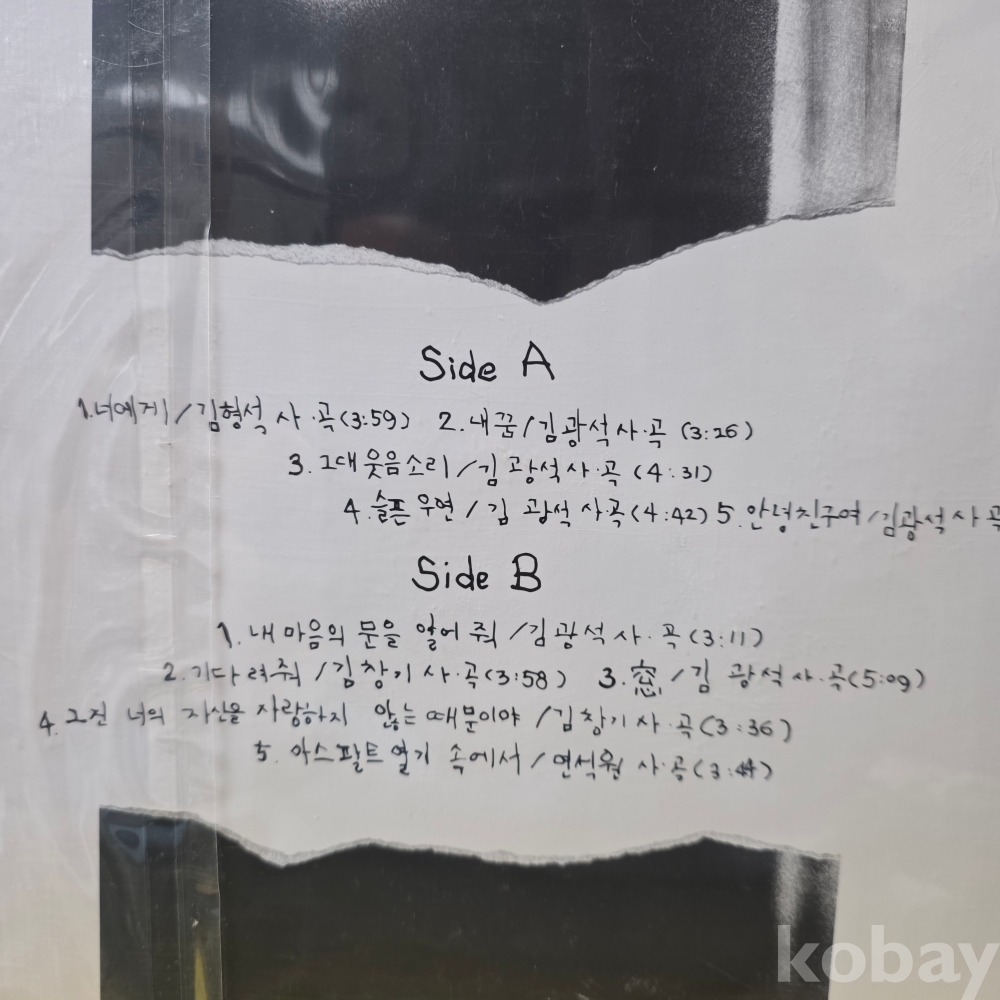 Side A
1. 너에게 / 김형석 사·곡 (3:59) 2. 내꿈 / 김광석 사·곡 (3:26)
3. 그대 웃음소리 / 김광석 사·곡 (4:31)
4. 슬픈 우연 / 김광석 사·곡 (4:42) 5. 안녕친구여 / 김광석 사·곡
Side B
1. 내 마음의 문을 열어 줘 / 김광석 사·곡 (3:11)
2. 기다려줘 / 김창기 사·곡 (3:58) 3. 窓 / 김광석 사·곡 (5:09)
4. 그건 너의 자신을 사랑하지 않는 때문이야 / 김창기 사·곡 (3:36)
5. 아스팔트 열기 속에서 / 연석원 사·곡 (3:44)
kobay